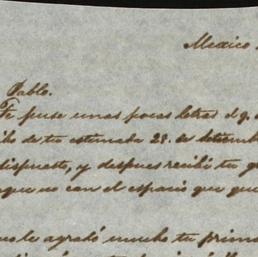 Mexico
Pablo.
Te puse unas pocas letras el 9.
de tu estimada 28. de setiemb
dispuesto, y despues recibi tu
que no con el espacio que que
le agradó mucho tu prim